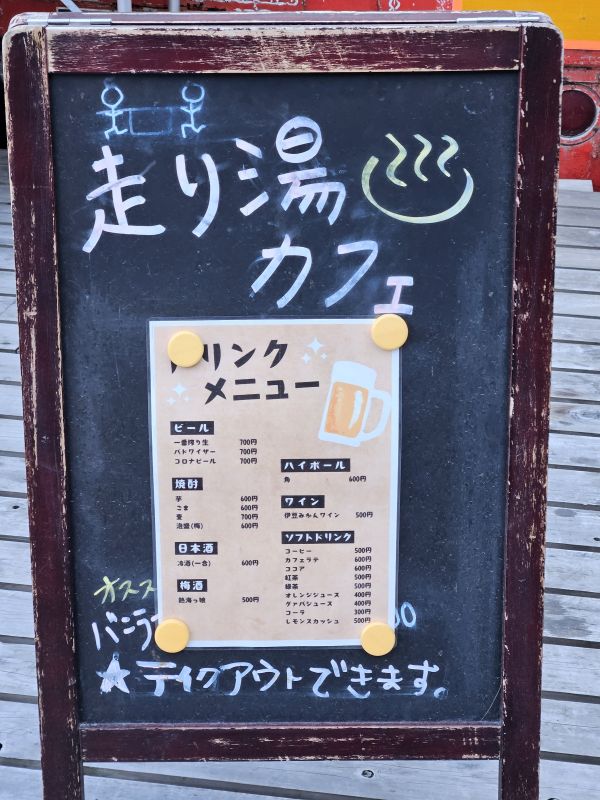 走り湯
カフェ
ドリンク
メニュー
ビール
一番搾り生 700円
バドワイザー 700円
コロナビール 700円
焼酎
芋 600円
ごま 600円
麦 700円
泡盛(梅) 600円
日本酒
冷酒(一合) 600円
梅酒
熱海っ娘 500円
ハイボール
角 600円
ワイン
伊豆みかんワイン 500円
ソフトドリンク
コーヒー 500円
カフェラテ 600円
ココア 600円
紅茶 500円
緑茶 500円
オレンジジュース 400円
グァバジュース 400円
コーラ 300円
レモンスカッシュ 500円
オスス
バニラ 00
★テイクアウトできます。